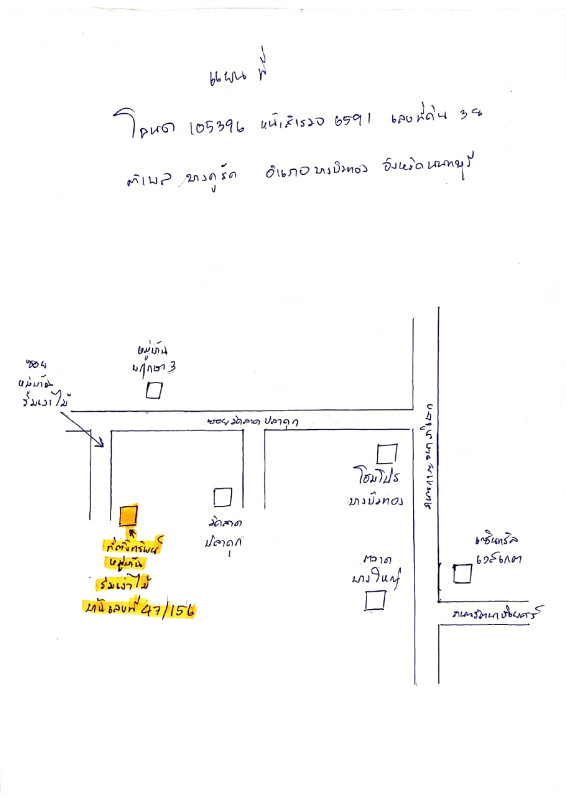 แผนที่
โฉนด 105396 หน้าสำรวจ 6591 เลขที่ดิน 38
ตำบล บางคูรัด อำเภอบางบัวทอง จังหวัดนนทบุรี
หมู่บ้าน
พฤกษา 3
ซอย
หมู่บ้าน
ร่มเงาไม้
ซอยวัดลาดปลาดุก
ถนนกาญจนาภิเษก
โฮมโปร
บางบัวทอง
วัดลาด
ปลาดุก
ที่ตั้งทรัพย์
หมู่บ้าน
ร่มเงาไม้
บ้านเลขที่ 47/156
ตลาด
บางใหญ่
เซ็นทรัล
เวสเกต
ถนนรัตนาธิเบศร์